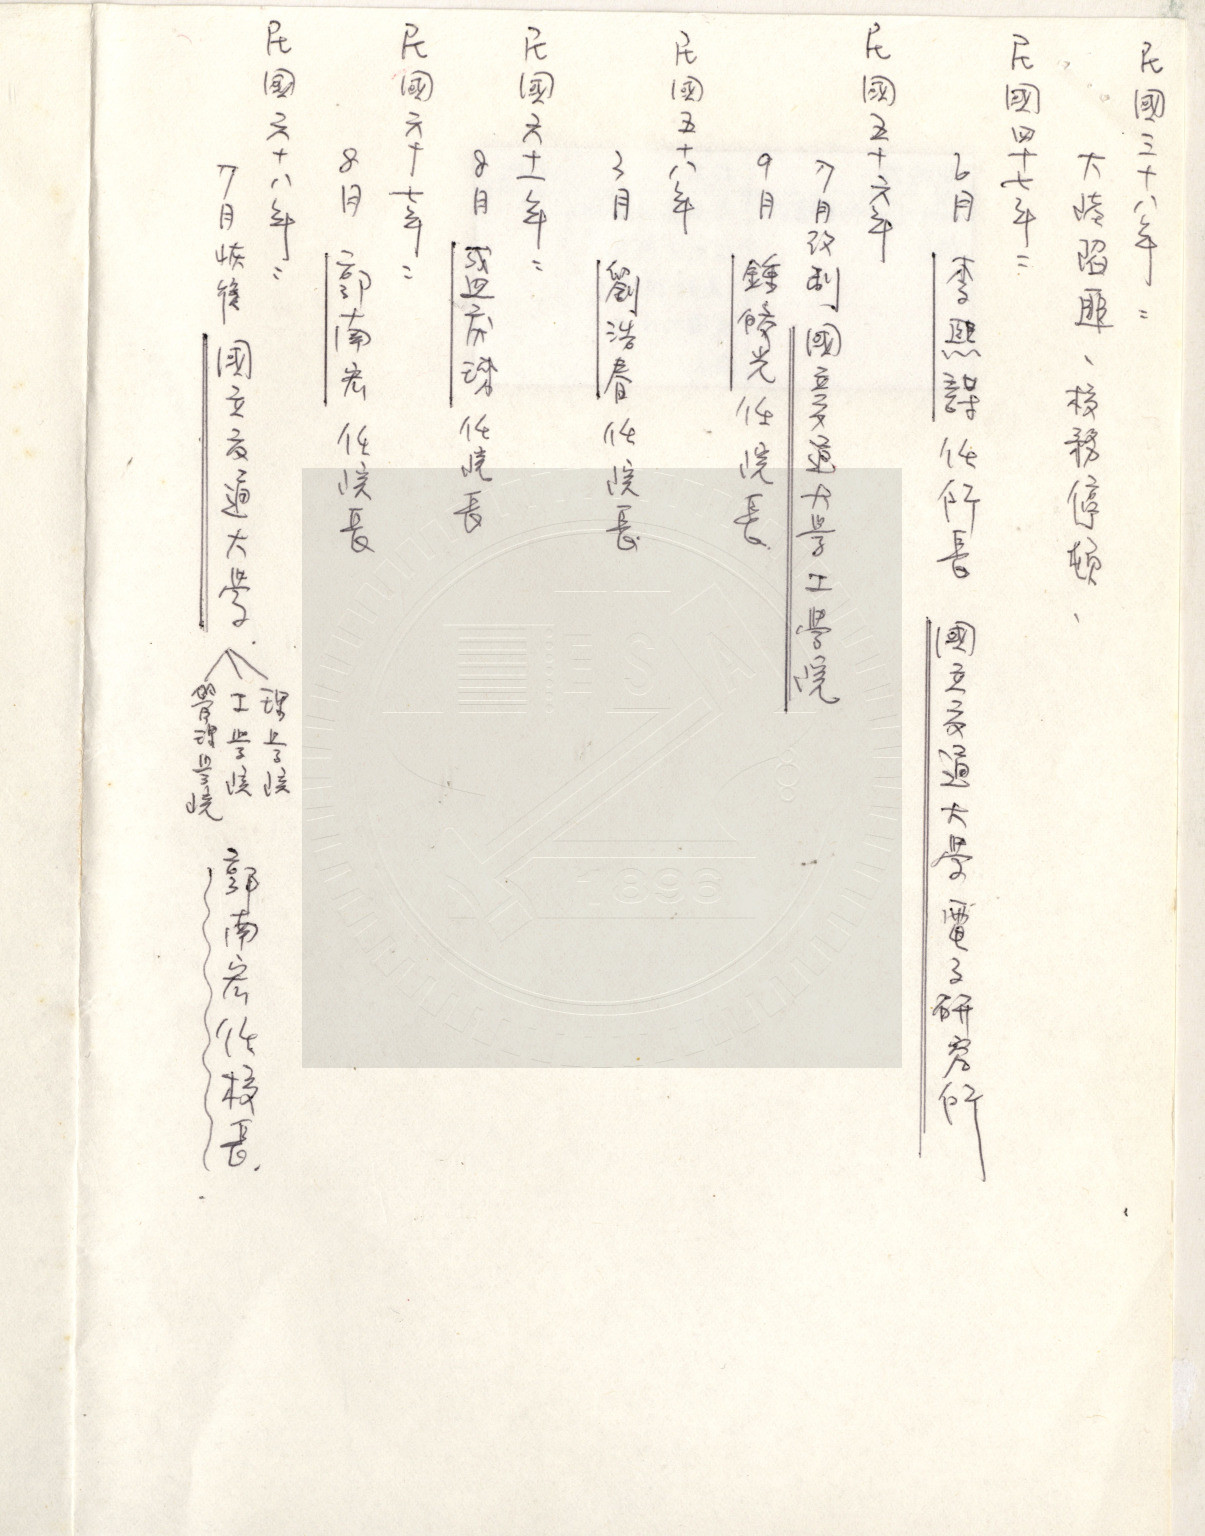 民國三十八年：
大陸陷匪、校務停頓、
民國四十七年：
6月 李熙謀任所長 國立交通大學電子研究所
民國五十六年
7月改制國立交通大學工學院
9月 鍾皎光任院長
民國五十八年
3月 劉浩春任院長
民國六十一年：
8月 盛慶琜任院長
民國六十七年：
8月 郭南宏任院長
民國六十八年：
7月恢復國立交通大學.
理學院
工學院
管理學院
郭南宏任校長.
ESA
1896